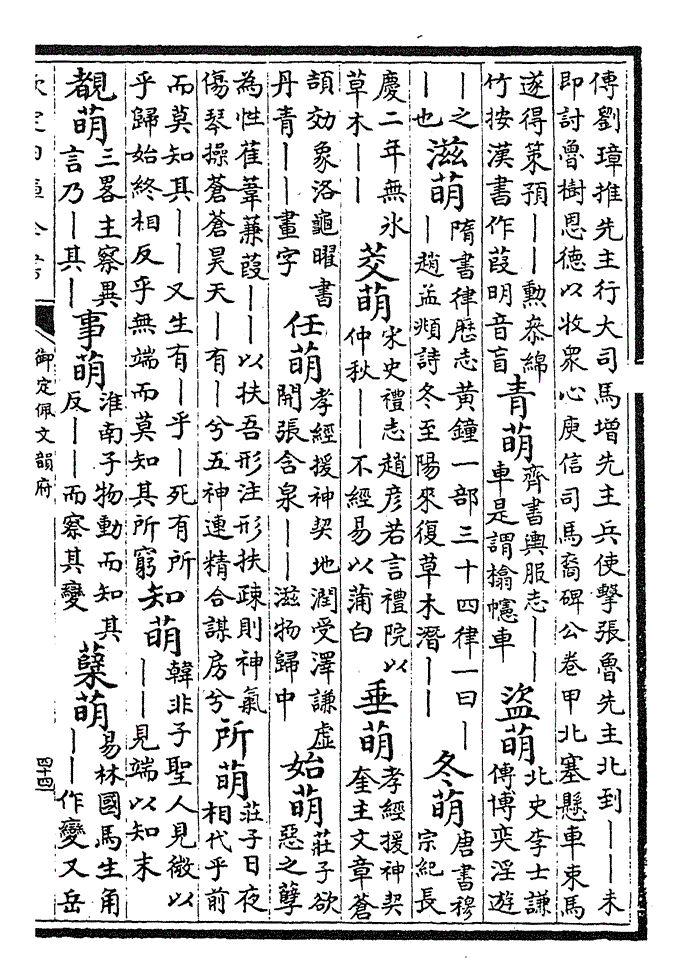 傳劉璋推先主行大司馬增先主兵使擊張魯先主北到——未
即討魯樹恩德以收衆心庾信司馬裔碑公卷甲北塞懸車束馬
遂得策預——勲叅綿
竹按漢書作葭明音盲
青萌
齊書輿服志——
車是謂揄幰車
盜萌
北史李士謙
傳博奕淫遊
—之
—也
滋萌
隋書律歴志黄鐘一部三十四律一曰—
—趙孟頫詩冬至陽來復草木潛——
冬萌
唐書穆
宗紀長
慶二年無氷
草木——
茭萌
宋史禮志趙彦若言禮院以
仲秋——不經易以蒲白
垂萌
孝經援神契
奎主文章蒼
頡効象洛龜曜書
丹青——畫字
任萌
孝經援神契地潤受澤謙虛
開張含泉——滋物歸中
始萌
莊子欲
惡之孽
為性萑葦蒹葭——以扶吾形注形扶疎則神氣
傷琴操蒼蒼昊天—有—兮五神連精合謀房兮
所萌
莊子日夜
相代乎前
而莫知其——又生有—乎—死有所
乎歸始終相反乎無端而莫知其所窮
知萌
韓非子聖人見微以
——見端以知末
覩萌
三畧主察異
言乃—其—
事萌
淮南子物動而知其
反——而察其變
櫱萌
易林國馬生角
——作變又岳
御定佩文韻府
四十四